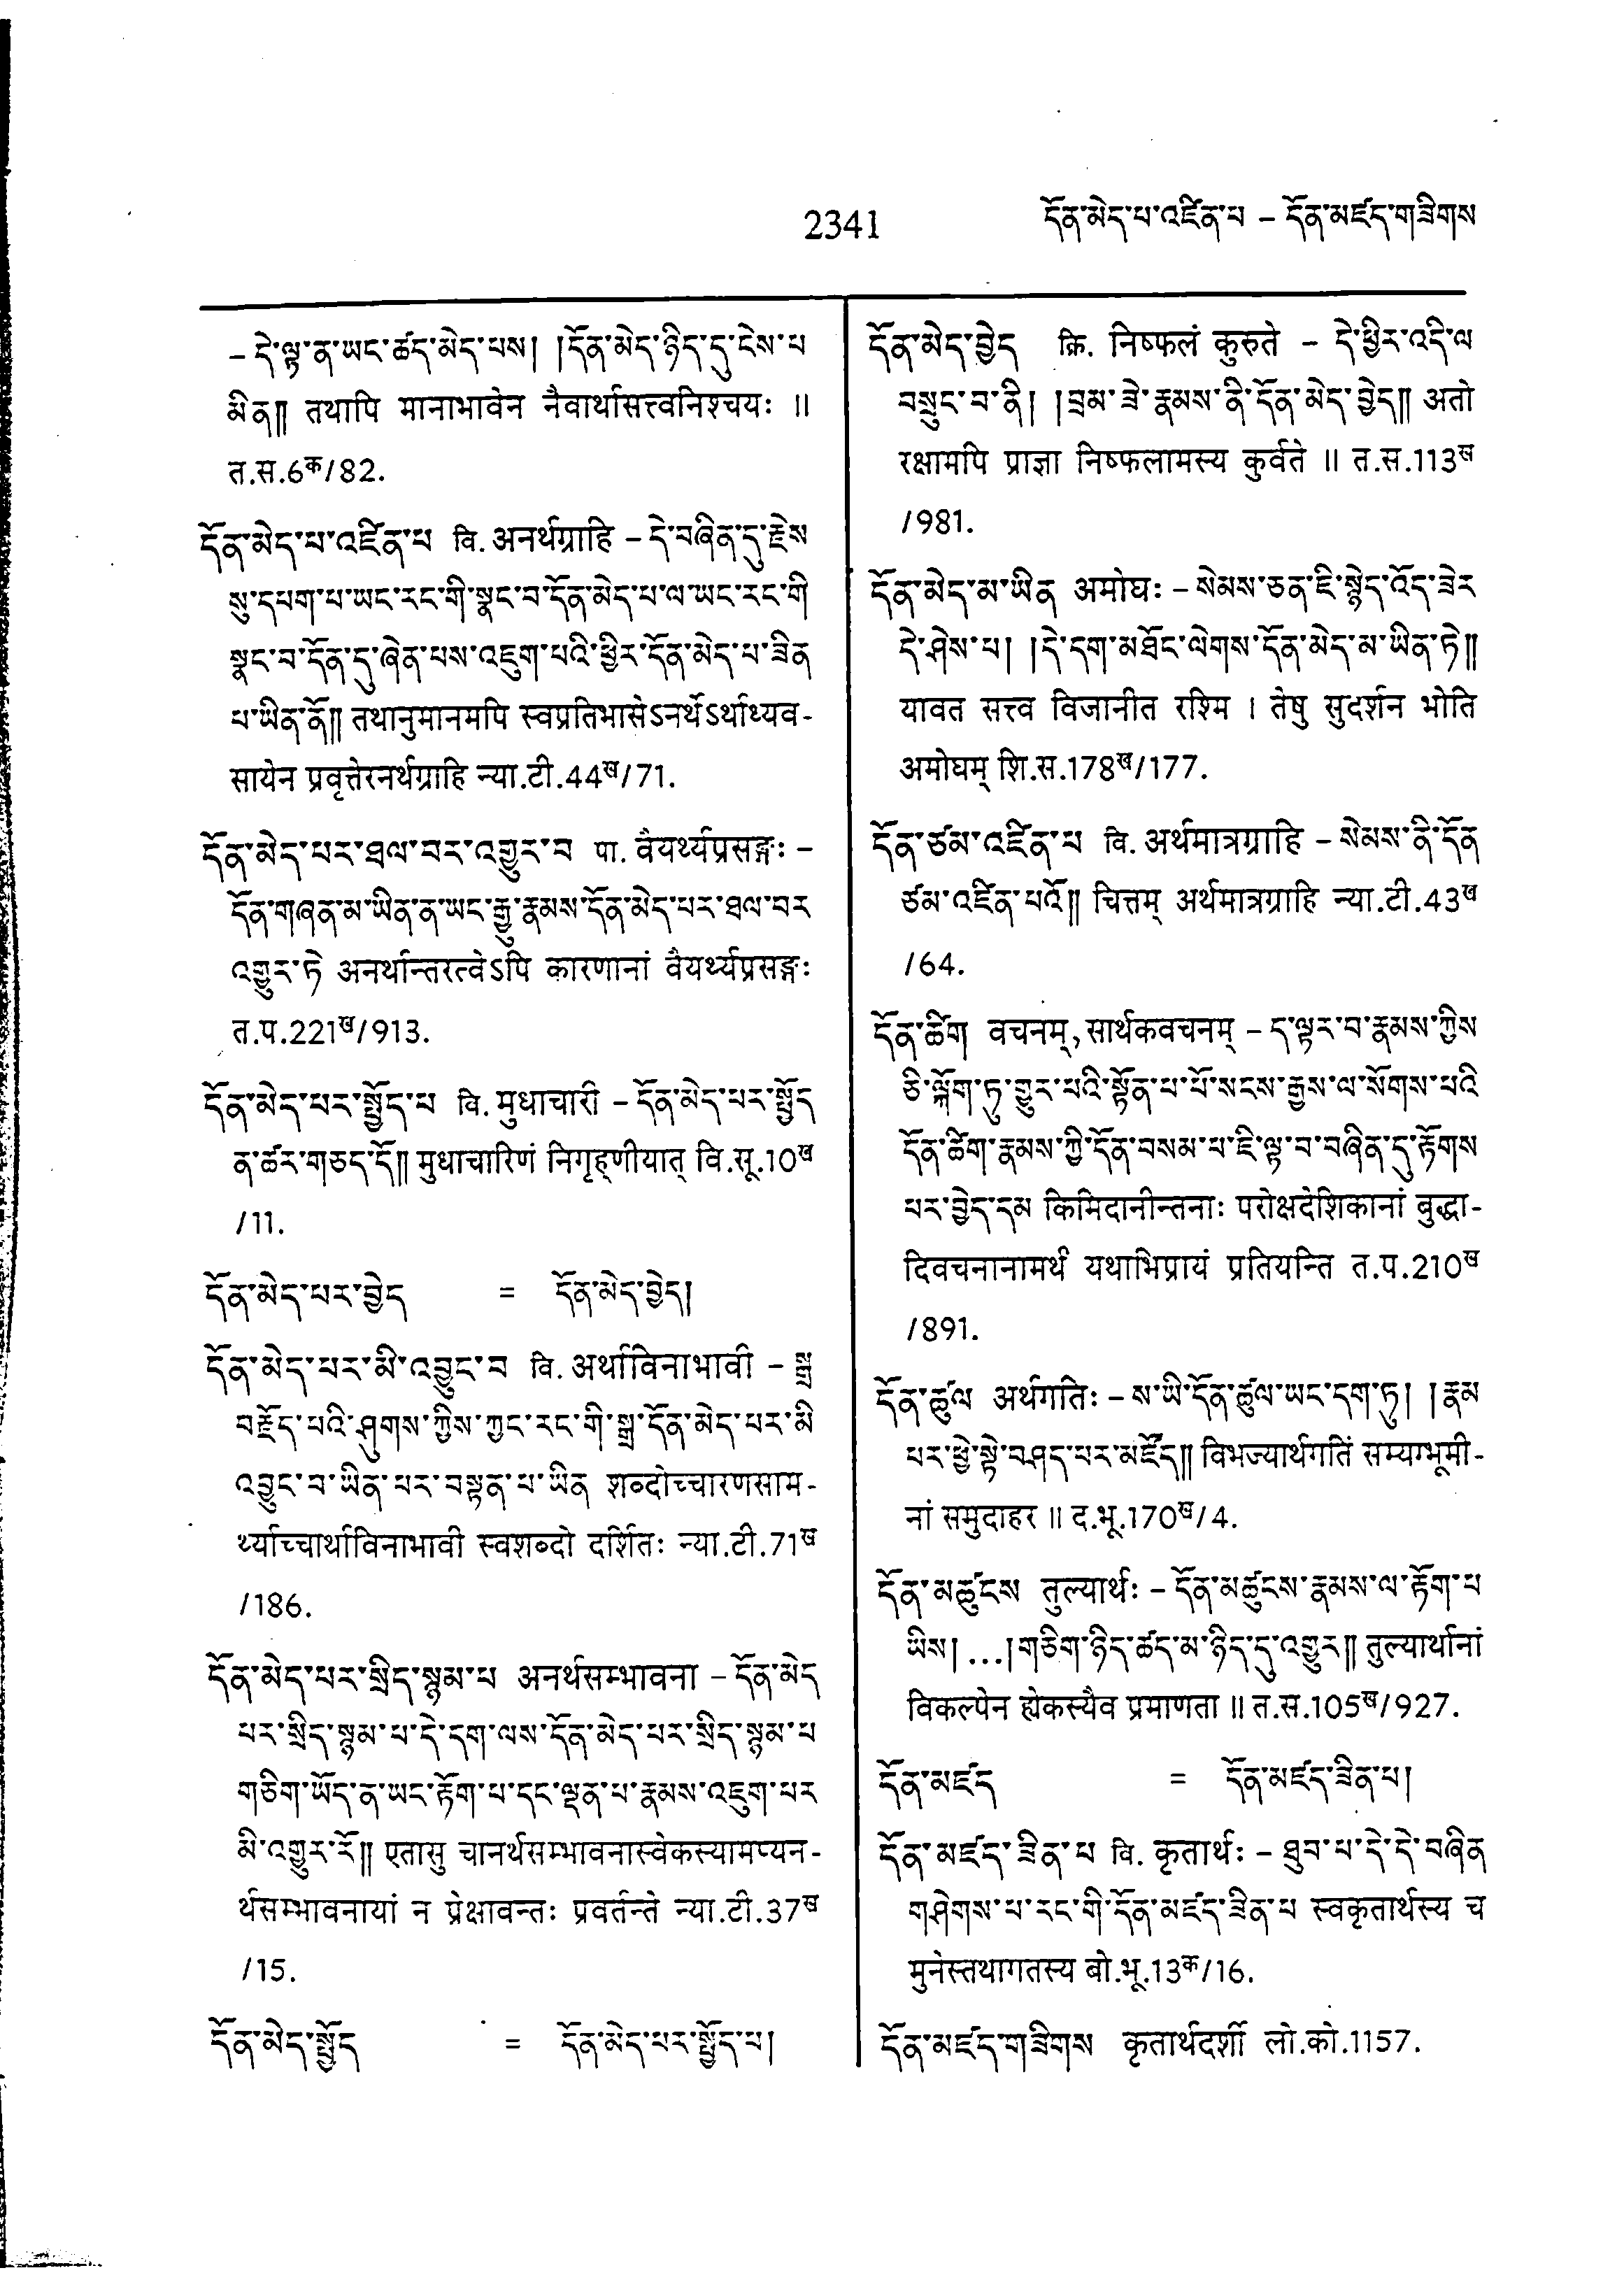 2341
དོན་མེད་པ་འཛིན་པ – དོན་མཛད་གཟིགས
– དེ་ལྟ་ན་ཡང་ཚད་མེད་པས། །དོན་མེད་ཉིད་དུ་ངེས་པ
མིན།། तथापि मानाभावेन नैवार्थासत्त्वनिश्चयः ॥
त.स.6क/82.
དོན་མེད་པ་འཛིན་པ वि. अनर्थग्राहि – དེ་བཞིན་དུ་རྗེས
སུ་དཔག་པ་ཡང་རང་གི་སྣང་བ་དོན་མེད་པ་ལ་ཡང་རང་གི
སྣང་བ་དོན་དུ་ཞེན་པས་འཇུག་པའི་ཕྱིར་དོན་མེད་པ་ཟིན
པ་ཡིན་ནོ།། तथानुमानमपि स्वप्रतिभासेऽनर्थेऽर्थाध्यव-
सायेन प्रवृत्तेरनर्थग्राहि न्या.टी.44ख/71.
དོན་མེད་པར་ཐལ་བར་འགྱུར་བ पा. वैयर्थ्यप्रसङ्गः –
དོན་གཞན་མ་ཡིན་ན་ཡང་རྒྱུ་རྣམས་དོན་མེད་པར་ཐལ་བར
འགྱུར་ཏེ अनर्थान्तरत्वेऽपि कारणानां वैयर्थ्यप्रसङ्गः
त.प.221ख/913.
དོན་མེད་པར་སྤྱོད་པ वि. मुधाचारी – དོན་མེད་པར་སྤྱོད
ན་ཚར་གཅད་དོ།། मुधाचारिणं निगृह्णीयात् वि.सू.10ख
/11.
དོན་མེད་པར་བྱེད = དོན་མེད་བྱེད།
དོན་མེད་པར་མི་འབྱུང་བ वि. अर्थाविनाभावी – སྒྲ
བརྗོད་པའི་ཤུགས་ཀྱིས་ཀྱང་རང་གི་སྒྲ་དོན་མེད་པར་མི
འབྱུང་བ་ཡིན་པར་བསྟན་པ་ཡིན शब्दोच्चारणसाम-
र्थ्याच्चार्थाविनाभावी स्वशब्दो दर्शितः न्या.टी.71ख
/186.
དོན་མེད་པར་སྲིད་སྙམ་པ अनर्थसम्भावना – དོན་མེད
པར་སྲིད་སྙམ་པ་དེ་དག་ལས་དོན་མེད་པར་སྲིད་སྙམ་པ
གཅིག་ཡོད་ན་ཡང་རྟོག་པ་དང་ལྡན་པ་རྣམས་འཇུག་པར
མི་འགྱུར་རོ།། एतासु चानर्थसम्भावनास्वेकस्यामप्यन-
र्थसम्भावनायां न प्रेक्षावन्तः प्रवर्तन्ते न्या.टी.37ख
/15.
དོན་མེད་སྤྱོད = དོན་མེད་པར་སྤྱོད་པ།
དོན་མེད་བྱེད क्रि. निष्फलं कुरुते – དེ་ཕྱིར་འདི་ལ
བསྲུང་བ་ནི། །བྲམ་ཟེ་རྣམས་ནི་དོན་མེད་བྱེད།། अतो
रक्षामपि प्राज्ञा निष्फलामस्य कुर्वते ॥ त.स.113ख
/981.
དོན་མེད་མ་ཡིན अमोघः – སེམས་ཅན་ཇི་སྙེད་འོད་ཟེར
དེ་ཤེས་པ། །དེ་དག་མཐོང་ལེགས་དོན་མེད་མ་ཡིན་ཏེ།།
यावत सत्त्व विजानीत रश्मि । तेषु सुदर्शन भोति
अमोघम् शि.स.178ख/177.
དོན་ཙམ་འཛིན་པ वि. अर्थमात्रग्राहि – སེམས་ནི་དོན
ཙམ་འཛིན་པའོ།། चित्तम् अर्थमात्रग्राहि न्या.टी.43ख
/64.
དོན་ཚིག वचनम्, सार्थकवचनम् – ད་ལྟར་བ་རྣམས་ཀྱིས
ཅི་ལྐོག་ཏུ་གྱུར་པའི་སྟོན་པ་པོ་སངས་རྒྱས་ལ་སོགས་པའི
དོན་ཚིག་རྣམས་ཀྱི་དོན་བསམ་པ་ཇི་ལྟ་བ་བཞིན་དུ་རྟོགས
པར་བྱེད་དམ किमिदानीन्तनाः परोक्षदेशिकानां बुद्धा-
दिवचनानामर्थं यथाभिप्रायं प्रतियन्ति त.प.210ख
/891.
དོན་ཚུལ अर्थगतिः – ས་ཡི་དོན་ཚུལ་ཡང་དག་ཏུ། །རྣམ
པར་ཕྱེ་སྟེ་བཤད་པར་མཛོད།། विभज्यार्थगतिं सम्यग्भूमी-
नां समुदाहर ॥ द.भू.170ख/4.
དོན་མཚུངས तुल्यार्थः – དོན་མཚུངས་རྣམས་ལ་རྟོག་པ
ཡིས། ...།གཅིག་ཉིད་ཚད་མ་ཉིད་དུ་འགྱུར།། तुल्यार्थानां
विकल्पेन ह्येकस्यैव प्रमाणता ॥ त.स.105ख/927.
དོན་མཛད = དོན་མཛད་ཟིན་པ།
དོན་མཛད་ཟིན་པ वि. कृतार्थः – ཐུབ་པ་དེ་དེ་བཞིན
གཤེགས་པ་རང་གི་དོན་མཛད་ཟིན་པ स्वकृतार्थस्य च
मुनेस्तथागतस्य बो.भू.13क/16.
དོན་མཛད་གཟིགས कृतार्थदर्शी लो.को.1157.